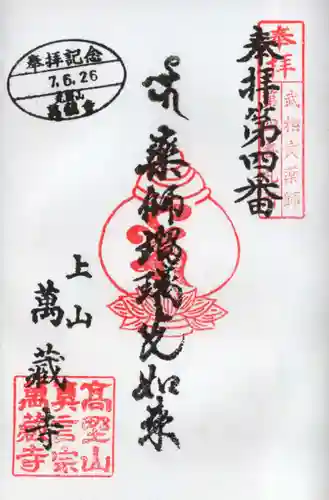 奉拝第四番
奉拝
武相大薬師
薬師瑠璃光如来
奉拝記念
7.6.26
萬蔵寺
上山
萬蔵寺
高野山
真言宗
萬蔵寺